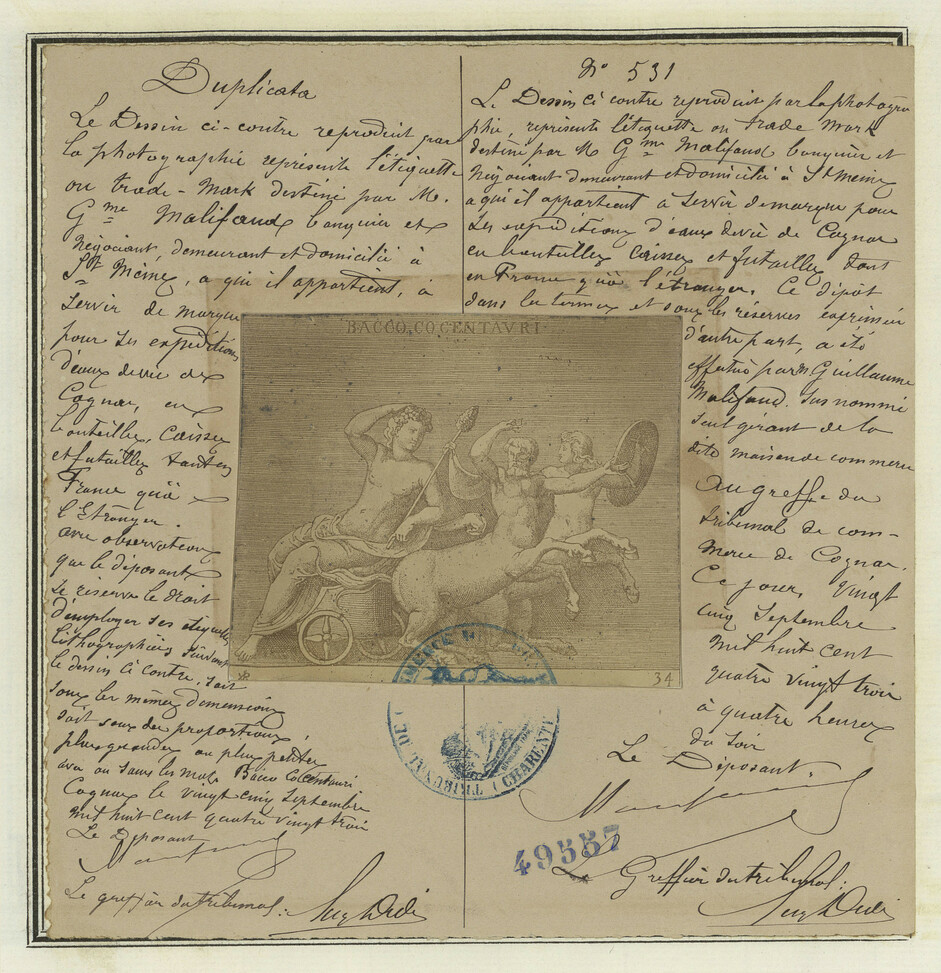 Duplicata
Le Dessin ci-contre reproduit par
la photographie représente l'étiquette
ou trade-Mark destiné par M.
Gme Malifaud banquier et
Négociant, demeurant et domicilié à
St Même, a qui il appartient, à
servir de marque
pour ses expéditions
d'eaux de vie de
Cognac, en
bouteilles, Caisses
et futailles tant en
France qu'à
l'Etranger.
avec observation
que le déposant
se réserve le droit
d'employer ses étiquettes
lithographiées suivant
le dessin ci contre, soit
sous les mêmes dimensions
soit sous des proportions
plus grandes ou plus petites
avec ou sans les mots Bacco Co Centauri
Cognac le vingt cinq Septembre
mil huit cent quatre vingt trois
Le Déposant
Le greffier du tribunal:
No 531
Le Dessin ci contre reproduit par la photogra
phie, représente l'étiquette ou trade Mark
destiné par M Gme Malifaud banquier et
Négociant demeurant et domicilié à St Même
a qui il appartient à servir de marque pour
ses expéditions d'eaux de vie de Cognac
en bouteilles Caisses et futailles tant
en France qu'à l'étranger. Ce dépôt
dans les termes et sous les réserves exprimées
d'autre part, a été
effectué par M Guillaume
Malifaud. Sus nommé
seul gérant de la
dite maison de commerce
au greffe du
tribunal de com-
merce de Cognac.
Ce jour, vingt
cinq Septembre
mil huit cent
quatre vingt trois
à quatre heures
du soir
Le Déposant.
Le Greffier du tribunal:
BACCO, CO CENTAVRI
34
TRIBUNAL DE COMMERCE
CHARENTE
49557